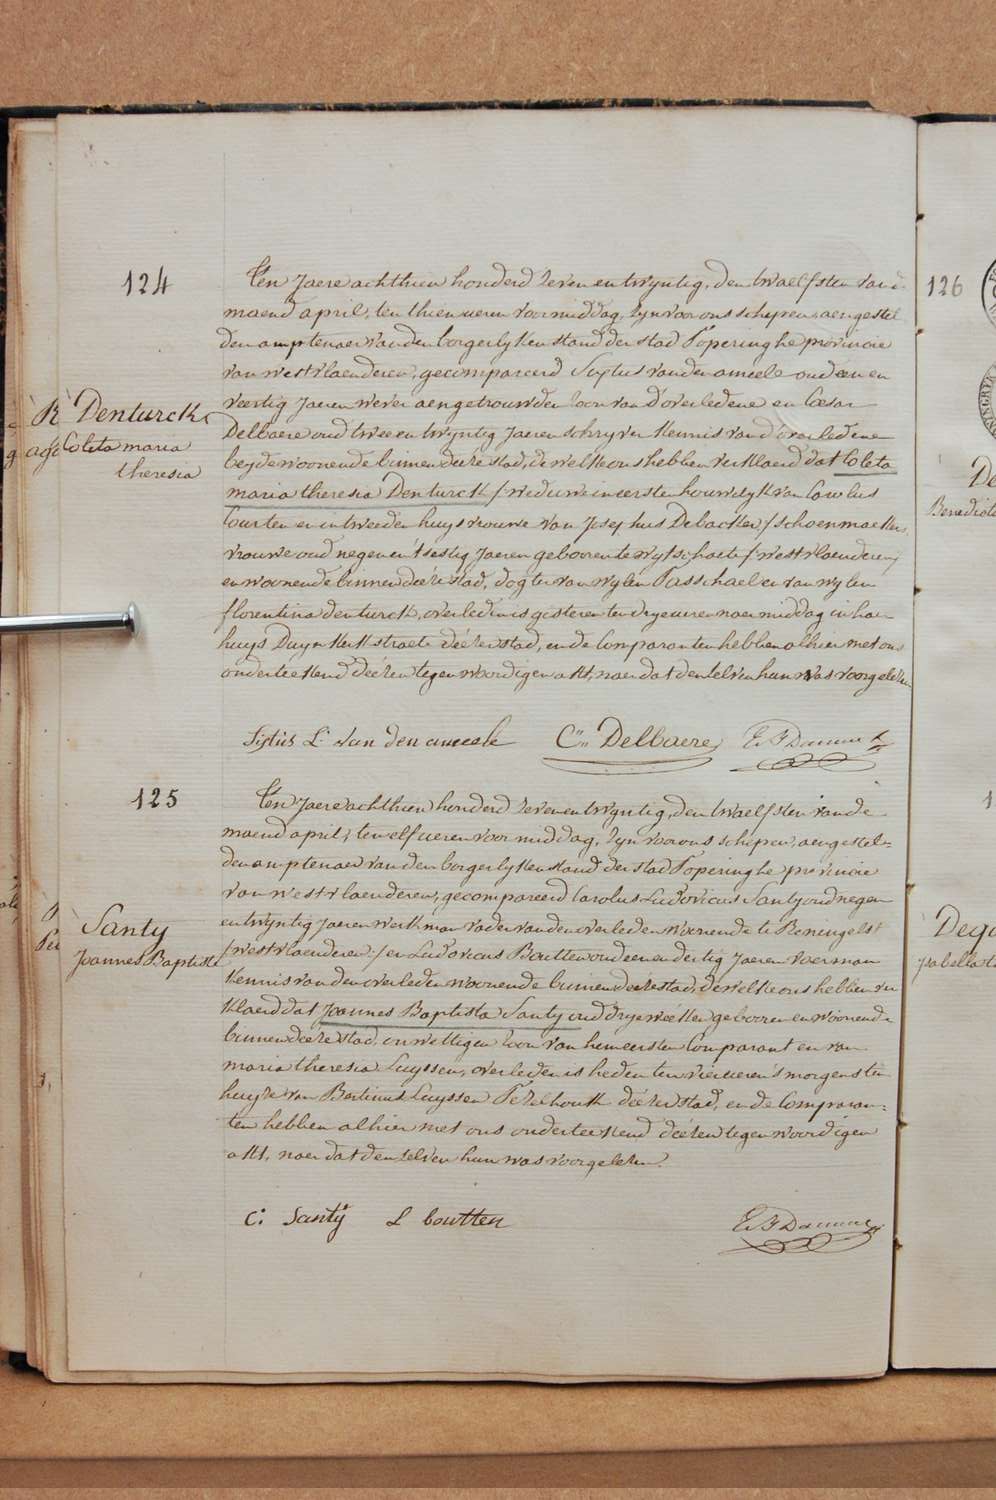 124
Denturck
Coleta maria
theresia
Ten Jaere achthien honderd zeven en twyntig, den twaelfsten van d
maend april, ten thien ueren voormiddag, Zyn voor ons schepen, aengestel
den amptenaer van den borgerlyken stand der stad Poperinghe provincie
van westvlaenderen, gecompareerd Sixtus vanden ameele oud een en
veertig Jaeren wever aengetrouwden zoon van d'overledene en Cæsar
Delbaere oud twee en twyntig Jaeren schryver Kennis van d'overledene
beyde woonende binnen deeze stad, dewelke ons hebben verklaerd dat Coleta
maria theresia Denturck / weduwe in eersten houwelyk van Carolus
Courten en in tweeden huysvrouwe van Josephus Debacker / schoenmaekers
vrouwe oud negen en 't sestig Jaeren gebooren te wytschaete / westvlaenderen /
en woonende binnen deeze stad, dogter van wylen Passchael en van wylen
florentina denturck, overleden is gisteren ten drye ueren naermiddag in haer
huys Duynkerkstraete deezer stad, en de Comparanten hebben alhier met ons
onderteekend deézen tegenwoordigen akt, naer dat denzelven hun was voorgelezen
Sixtus L. Van den ameele C. Delbaere
125
Santy
Joannes Baptiste
Ten Jaere achthien honderd zeven en twyntig, den twaelfsten van de
maend april, ten elf ueren voormiddag, Zyn voor ons schepen, aengestel=
den amptenaer van den borgerlyken stand der stad Poperinghe provincie
van westvlaenderen, gecompareerd Carolus Ludovicus Santy oud negen
en twyntig Jaeren werkman vader van den overleden woonende te Reningelst
/ westvlaenderen / en Ludovicus Boutten oud een en dertig Jaeren voerman
Kennis van den overleden woonende binnen deeze stad, dewelke ons hebben ver
klaerd dat Joannes Baptista Santy oud drye weeken gebooren en woonende
binnen deeze stad, onwettigen zoon van hem eersten Comparant en van
maria theresia Luyssen, overleden is heden ten vier ueren 's morgens ten
huyze van Bertinus Luyssen Pezelhoek deézer stad, en de Comparan=
ten hebben alhier met ons onderteekend deézen tegenwoordigen
akt, naer dat denzelven hun was voorgelezen.
C: Santÿ L boutten
126
De
Benedicte
Dego
Isabella